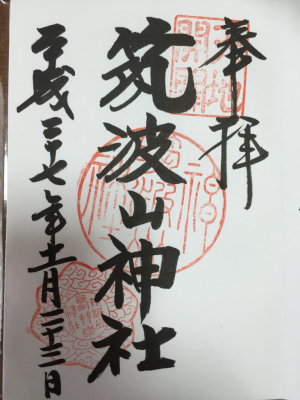 奉拝
天地開闢
筑波山神社
平成二十七年十一月二十三日